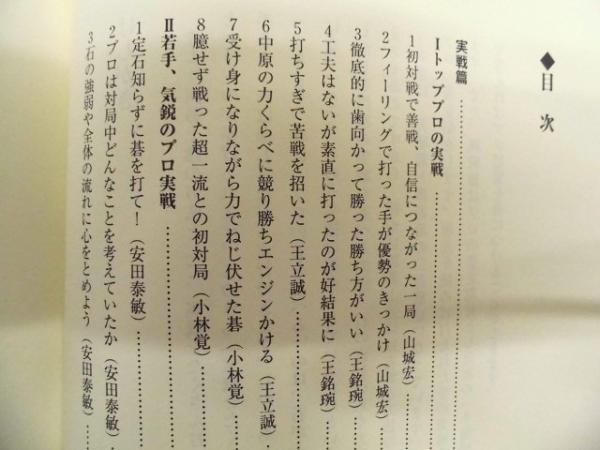 ◆目次
実戦篇 ……………
Ⅰトッププロの実戦 ……………
1初対戦で善戦、自信につながった一局（山城宏）……
2フィーリングで打った手が優勢のきっかけ（山城宏）……
3徹底的に歯向かって勝った勝ち方がいい（王銘琬）……
4工夫はないが素直に打ったのが好結果に（王銘琬）……
5打ちすぎで苦戦を招いた（王立誠）……
6中原の力くらべに競り勝ちエンジンかける（王立誠）……
7受け身になりながら力でねじ伏せた碁（小林覚）……
8臆せず戦った超一流との初対局（小林覚）……
Ⅱ若手、気鋭のプロ実戦 ……………
1定石知らずに碁を打て！（安田泰敏）……
2プロは対局中どんなことを考えていたか（安田泰敏）……
3石の強弱や全体の流れに心をとめよう（安田泰敏）……